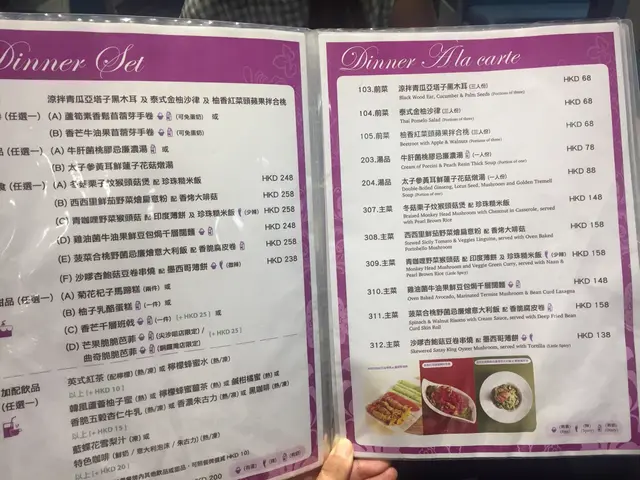 Dinner Set
涼拌青瓜亞塔子黑木耳 及 泰式金柚沙律 及 柚香紅菜頭蘋果拌合桃
(任選一) (A) 蘆筍果香鬆苜蓿芽手卷 (可免蛋奶) 或
(B) 香芒牛油果苜蓿芽手卷 (可免蛋奶)
(任選一) (A) 牛肝菌桃膠忌廉濃湯 或
(B) 太子參黃耳鮮蓮子花菇燉湯
(任選一) (A) 冬菇栗子炆猴頭菇煲 配 珍珠糙米飯 HKD 248
(B) 西西里鮮茄野菜燴扁意粉 配 香烤大啡菇 HKD 258
(C) 青咖喱野菜猴頭菇 配 印度薄餅 及 珍珠糙米飯 (少辣) HKD 258
(D) 雞油菌牛油果鮮豆包焗千層麵 HKD 248
(E) 菠菜合桃野菌忌廉燴意大利飯 配 香脆腐皮卷 HKD 258
(F) 沙嗲杏鮑菇豆卷串燒 配 墨西哥薄餅 HKD 238
甜品 (任選一) (A) 菊花杞子馬蹄糕 (兩件) 或
(B) 柚子乳酪蛋糕 (一件) 或
(C) 香芒千層班戟 (一件) [+ HKD 25] 或
(D) 芒果脆脆芭菲 (尖沙咀店限定) /
曲奇脆脆芭菲 (銅鑼灣店限定) [+ HKD 25]
加配飲品
(任選一) 英式紅茶 (配檸檬) (熱/凍) 或 檸檬蜂蜜水 (熱/凍)
以上 [+ HKD 10]
韓風蘆薈柚子蜜 (熱) 或 檸檬蜂蜜薑茶 (熱) 或 鹹柑橘蜜 (熱) 或
香脆五穀杏仁牛乳 (熱/凍) 或 香濃朱古力 (熱/凍) 或 黑咖啡 (熱/凍)
以上 [+ HKD 15]
藍蝶花雪梨汁 (凍) 或
特色咖啡 (鮮奶 / 意大利泡沫 / 朱古力) (熱/凍)
以上 [+ HKD 20]
HKD 200
Dinner A la carte
103.前菜 涼拌青瓜亞塔子黑木耳 (三人份) HKD 68
Black Wood Ear, Cucumber & Palm Seeds (Portions of three)
104.前菜 泰式金柚沙律 (三人份) HKD 68
Thai Pomelo Salad (Portions of three)
105.前菜 柚香紅菜頭蘋果拌合桃 (三人份) HKD 68
Beetroot with Apple & Walnuts (Portions of three)
203.湯品 牛肝菌桃膠忌廉濃湯 (一人份) HKD 78
Cream of Porcini & Peach Resin Thick Soup (Portion of one)
204.湯品 太子參黃耳鮮蓮子花菇燉湯 (一人份) HKD 88
Double-Boiled Ginseng, Lotus Seed, Mushroom and Golden Tremell
Soup (Portion of one)
307.主菜 冬菇栗子炆猴頭菇煲 配 珍珠糙米飯 HKD 148
Braised Monkey Head Mushroom with Chestnut in Casserole, served
with Pearl Brown Rice
308.主菜 西西里鮮茄野菜燴扁意粉 配 香烤大啡菇 HKD 158
Stewed Sicily Tomato & Veggies Linguine, served with Oven Baked
Portobello Mushroom
309.主菜 青咖喱野菜猴頭菇 配 印度薄餅 及 珍珠糙米飯 (少辣) HKD 158
Monkey Head Mushroom and Veggie Green Curry, served with Naan &
Pearl Brown Rice (Little Spicy)
310.主菜 雞油菌牛油果鮮豆包焗千層麵 HKD 148
Oven Baked Avocado, Marinated Termite Mushroom & Bean Curd Lasagna
311.主菜 菠菜合桃野菌忌廉燴意大利飯 配 香脆腐皮卷 HKD 158
Spinach & Walnut Risotto with Cream Sauce, served with Deep Fried Bean
Curd Skin Roll
312.主菜 沙嗲杏鮑菇豆卷串燒 配 墨西哥薄餅 HKD 138
Skewered Satay King Oyster Mushroom, served with Tortilla (Little Spicy)